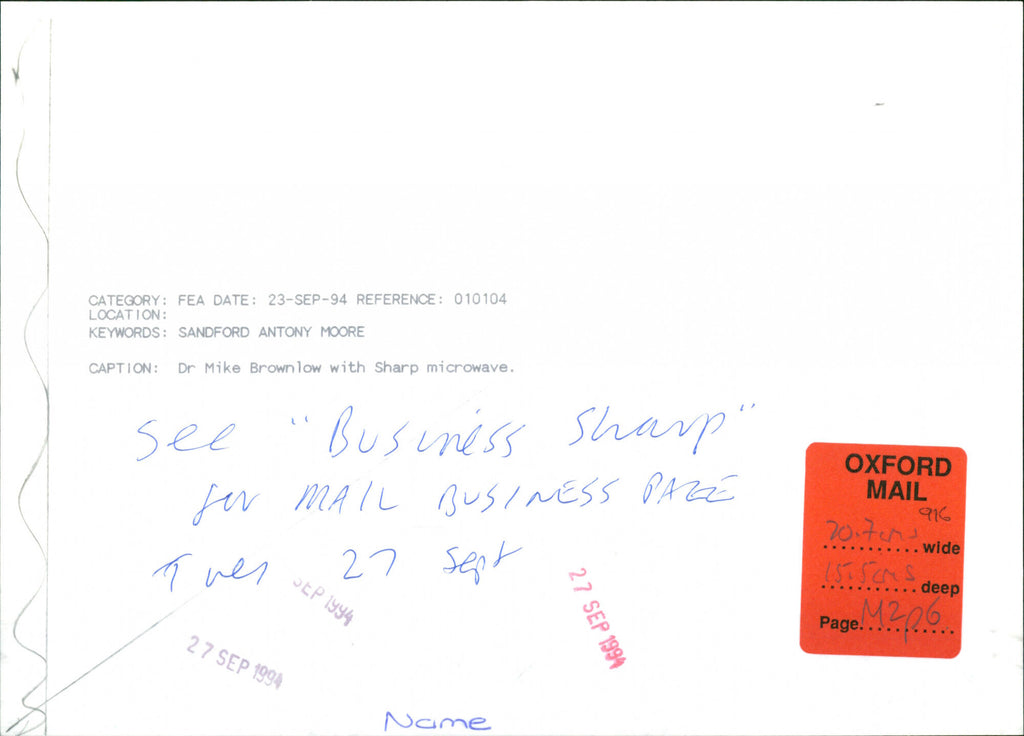 CATEGORY: FEA DATE: 23-SEP-94 REFERENCE: 010104
LOCATION:
KEYWORDS: SANDFORD ANTONY MOORE
CAPTION: Dr Mike Brownlow with Sharp microwave.
See "Business Sharp"
for MAIL BUSINESS PAGE
Tues 27 Sept
SEP 1994
27 SEP 1994
27 SEP 1994
Name
OXFORD
MAIL
916
20.7cms wide
15.5cms deep
Page M2p6